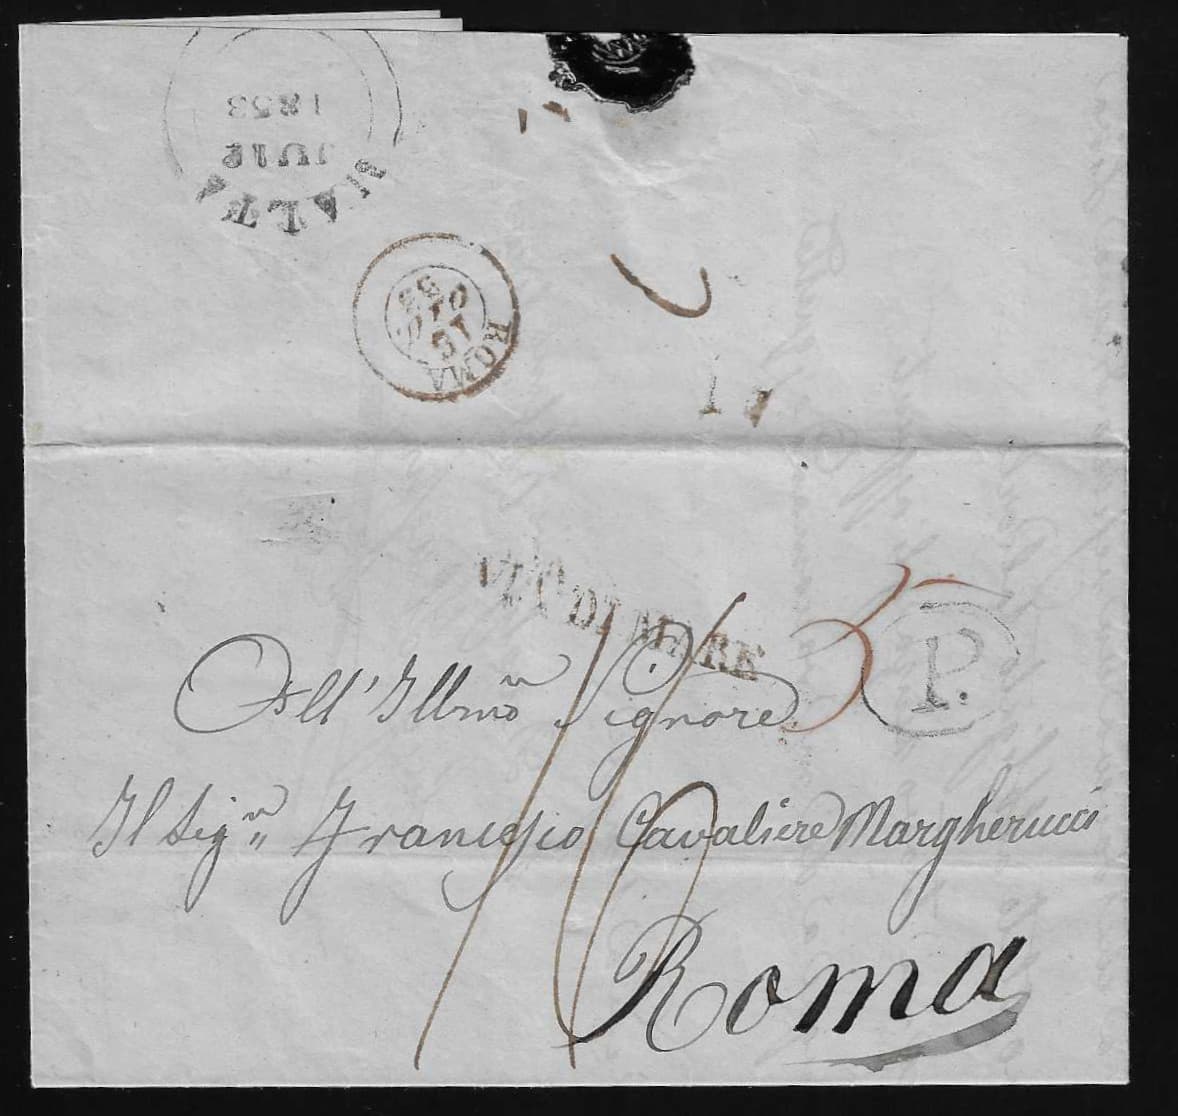 MALTA
JU12
1853
ROMA
16
GIU
53
17
VIA DI MARE
P.
All' Illmo Signore
Il Sigr Francesco Cavaliere Margherucci
16
Roma